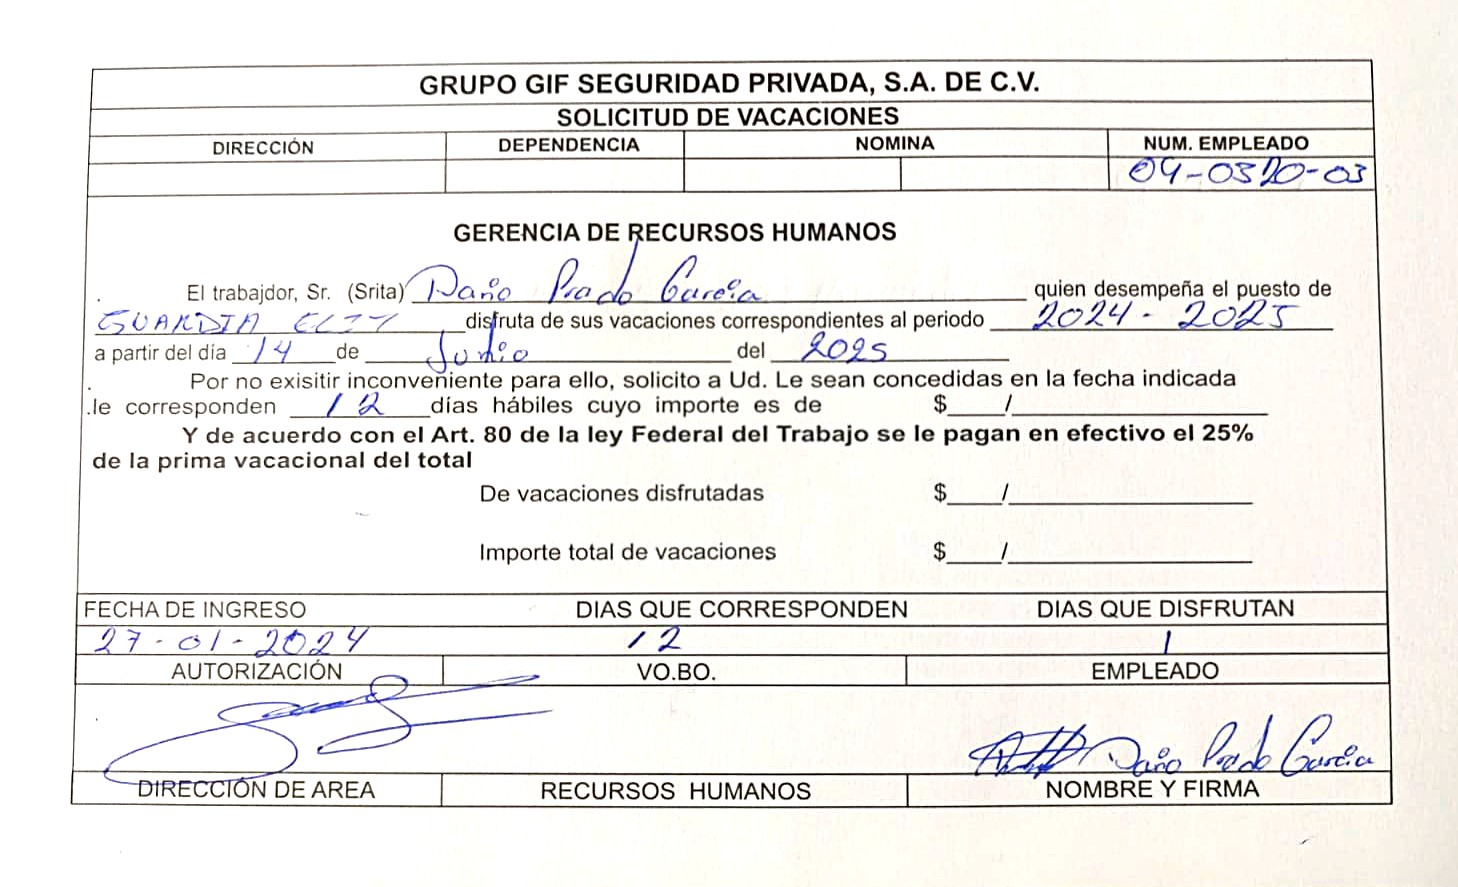 GRUPO GIF SEGURIDAD PRIVADA, S.A. DE C.V.
SOLICITUD DE VACACIONES
DIRECCIÓN DEPENDENCIA NOMINA NUM. EMPLEADO
04-0320-03
GERENCIA DE RECURSOS HUMANOS
El trabajdor, Sr. (Srita) Prado García quien desempeña el puesto de
GUARDIA disfruta de sus vacaciones correspondientes al periodo 2024 - 2025
a partir del día 14 de Junio del 2025
Por no exisitir inconveniente para ello, solicito a Ud. Le sean concedidas en la fecha indicada
.le corresponden 12 días hábiles cuyo importe es de $ /
Y de acuerdo con el Art. 80 de la ley Federal del Trabajo se le pagan en efectivo el 25%
de la prima vacacional del total
De vacaciones disfrutadas $ /
Importe total de vacaciones $ /
FECHA DE INGRESO DIAS QUE CORRESPONDEN DIAS QUE DISFRUTAN
27-01-2024 12 1
AUTORIZACIÓN VO.BO. EMPLEADO
Prado García
DIRECCIÓN DE AREA RECURSOS HUMANOS NOMBRE Y FIRMA